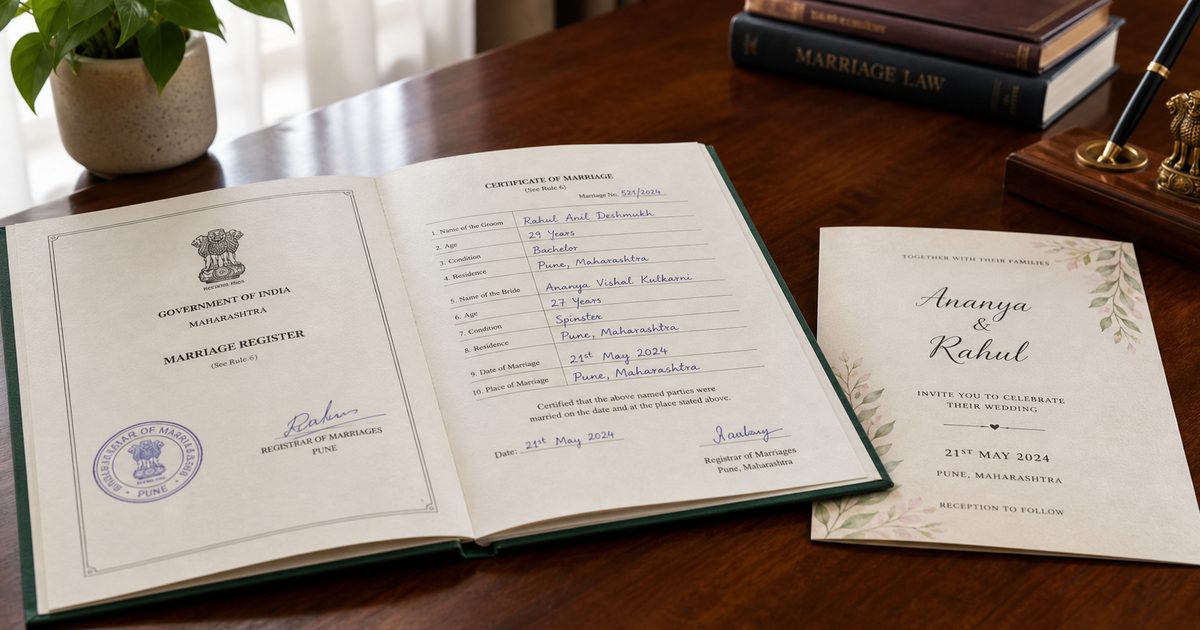 GOVERNMENT OF INDIA
MAHARASHTRA
MARRIAGE REGISTER
(See Rule.6)
REGISTRAR OF MARRIAGES
PUNE
OF MARRIA
PUNE
CERTIFICATE OF MARRIAGE
(See Rule 6)
Marriage No. 521/2024
1. Name of the Groom Rahul Anil Deshmukh
2. Age 29 Years
3. Condition Bachelor
4. Residence Pune, Maharashtra
5. Name of the Bride Ananya Vishal Kulkarni
6. Age 27 Years
7. Condition Spinster
8. Residence Pune, Maharashtra
9. Date of Marriage 21st May 2024
10. Place of Marriage Pune, Maharashtra
Certified that the above named parties were
married on the date and at the place stated above.
Date: 21st May 2024
Registrar of Marriages
Pune, Maharashtra
MARRIAGE LAW
TOGETHER WITH THEIR FAMILIES
Ananya
&
Rahul
INVITE YOU TO CELEBRATE
THEIR WEDDING
21ST MAY 2024
PUNE, MAHARASHTRA
RECEPTION TO FOLLOW